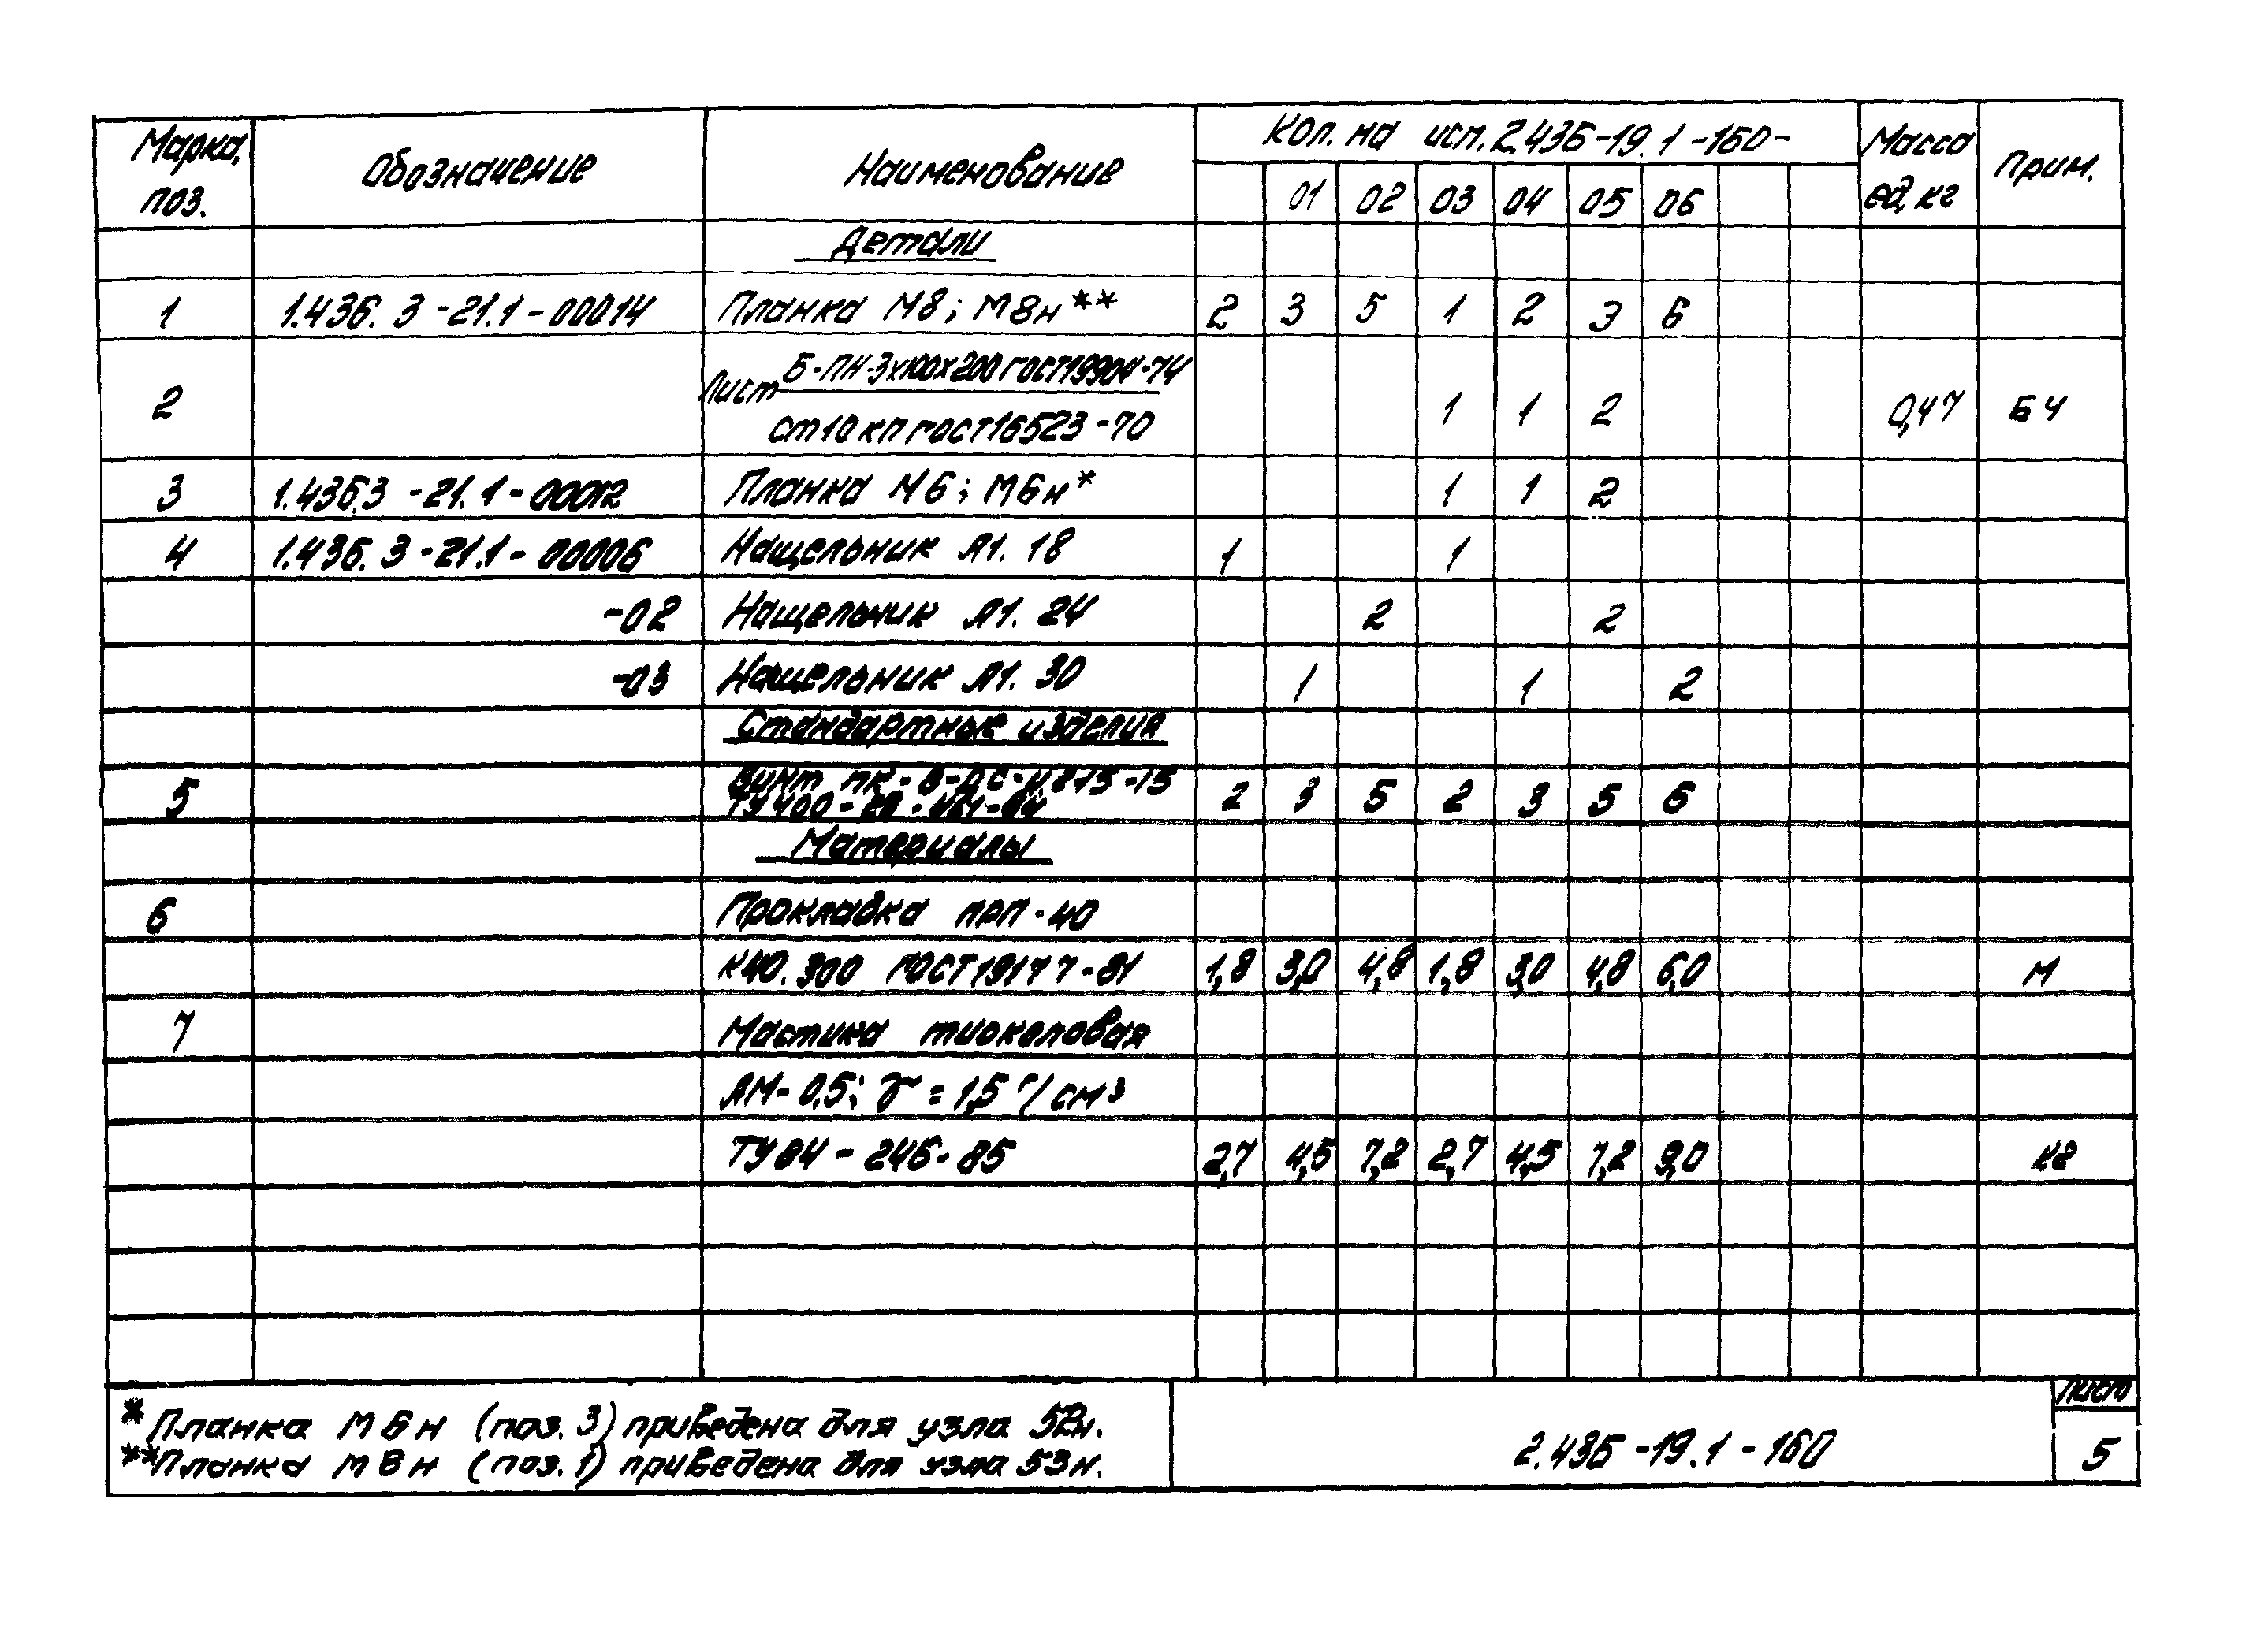 Марка, поз. Обозначение Наименование Кол. на исп. 2.436-19.1-160- Масса ед, кг Прим.
01 02 03 04 05 06
Детали
1 1.436.3-21.1-00014 Планка М8; М8н** 2 3 5 1 2 3 6
2 Лист Б-ПН-3х100х200 ГОСТ19904-74 1 1 2 0,47 БЧ
Ст10кп ГОСТ16523-70
3 1.436.3-21.1-00012 Планка М6; М6н* 1 1 2
4 1.436.3-21.1-00006 Нащельник Л1.18 1 1
-02 Нащельник Л1.24 2 2
-03 Нащельник Л1.30 1 1 2
Стандартные изделия
5 Винт 2 3 5 2 3 5 6
Материалы
6 Прокладка ПРП-40
К40.300 ГОСТ19177-81 1,8 3,0 4,8 1,8 3,0 4,8 6,0 м
7 Мастика тиоколовая
АМ-0,5; γ = 1,5 г/см³
ТУ84-246-85 2,7 4,5 7,2 2,7 4,5 7,2 9,0 кг
* Планка М6н (поз. 3) приведена для узла 52н.
** Планка М8н (поз. 1) приведена для узла 53н.
2.436-19.1-160
Лист
5